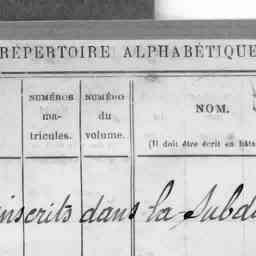 RÉPERTOIRE ALPHABÉTIQUE
NUMÉROS
ma-
tricules.
NUMÉRO
du
volume.
NOM.
(Il doit être écrit en bâta
inscrits dans la Subdi